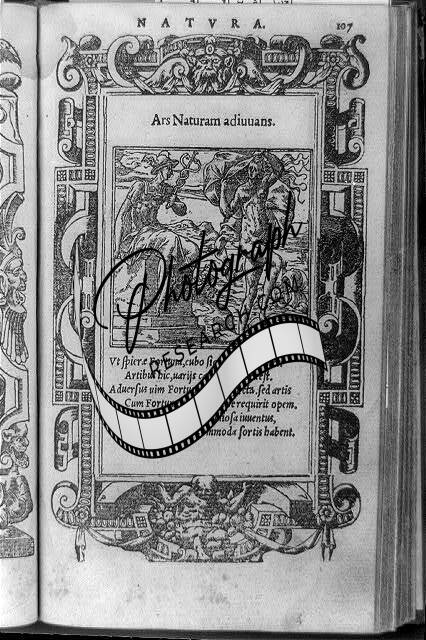 NATVRA.
107
Ars Naturam adiuuans.
Photograph
RESEARCH.COM
Vt sphæræ Fortuna, cubo
Artibus hic, uarijs
Aduersus uim Fortu sed artis
Cum Fortu requirit opem.
iuuentus,
mmoda sortis habent.